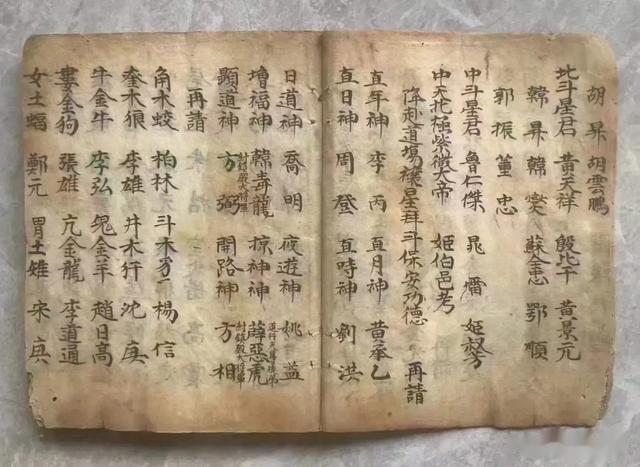 胡昇 胡雲鵬
北斗星君 黄天祥 殷比干 黄景元
韓昇 韓燮 蘇全忠 鄂順
郭振 董忠
中斗星君 魯仁傑 晁 姬叔
中天北極紫微大帝 姬伯邑考
降赴道場禳星拜斗保安功德 再請
直年神 李丙 直月神 黄承乙
直日神 周登 直時神 劉洪
日道神 喬明 夜遊神 姚益
增福神 韓毒龍 掠神神 薛惡虎
顯道神 方弼 開路神 方相
再請
角木蛟 柏林 斗木 楊信
奎木狼 李雄 井木犴 沈庚
牛金牛 李弘 鬼金羊 趙日高
婁金狗 張雄 亢金龍 李道通
女土蝠 鄭元 胃土雉 宋庚